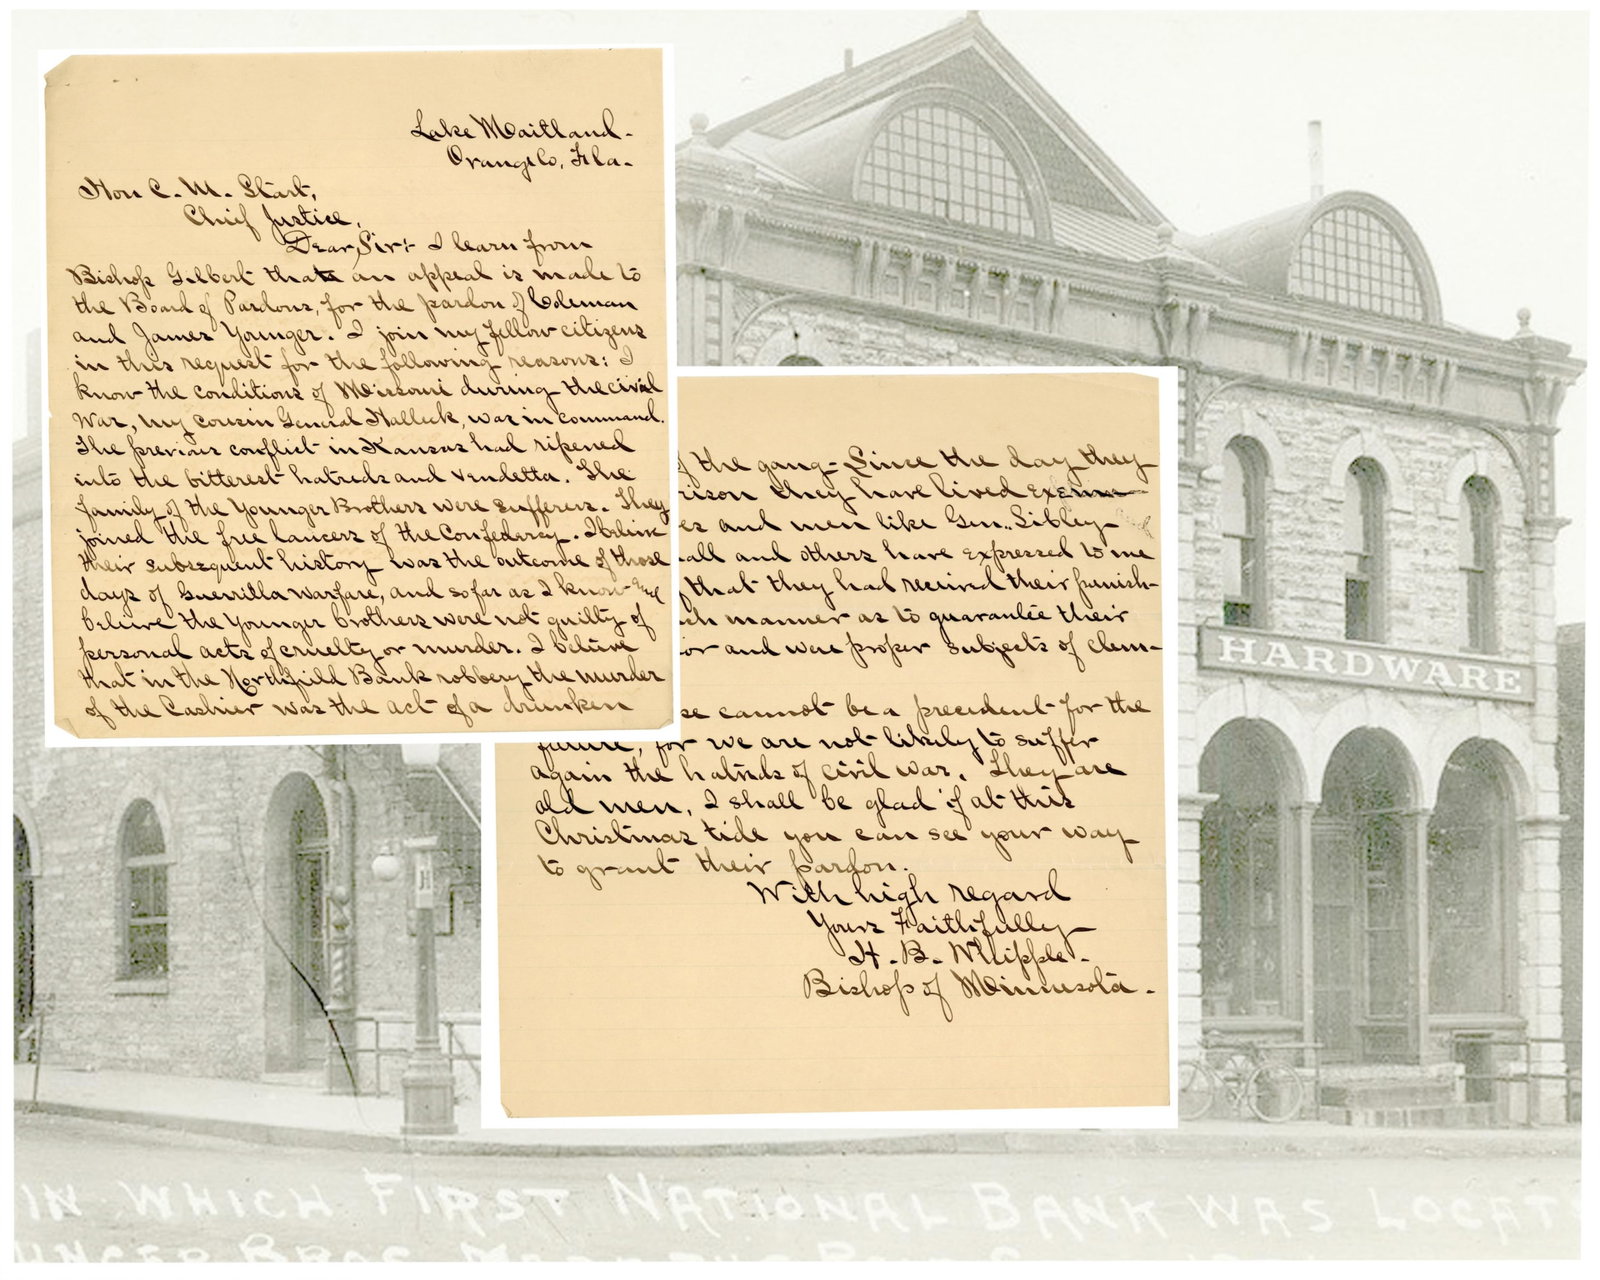 Lake Maitland-
Orange Co, Fla-
Hon C. M. Start,
Chief Justice,
Dear Sir:- I learn from
Bishop Gilbert that an appeal is made to
the Board of Pardons, for the pardon of Coleman
and James Younger. I join my fellow citizens
in this request for the following reasons: I
know the conditions of Missouri during the civil
War, my cousin General Halleck, was in command.
The previous conflict in Kansas had ripened
into the bitterest hatreds and vendetta. The
family of the Younger Brothers were sufferers. They
joined the free lancers of the Confederacy. I believe
their subsequent history was the outcome of those
days of Guerrilla warfare, and so far as I know and
believe the Younger brothers were not guilty of
personal acts of cruelty or murder. I believe
that in the Northfield Bank robbery the murder
of the Cashier was the act of a drunken
of the gang - Since the day they
rison they have lived exem-
es and men like Gen. Sibley
all and others have expressed to me
that they had received their punish-
ch manner as to guarantee their
ior and were proper subjects of clem-
se cannot be a precedent for the
future, for we are not likely to suffer
again the hatreds of civil war. They are
old men, I shall be glad if at this
Christmas tide you can see your way
to grant their pardon.
With high regard
Yours Faithfully
H. B. Whipple-
Bishop of Minnesota-
HARDWARE
IN WHICH FIRST NATIONAL BANK WAS LOCAT
UNGER BROS